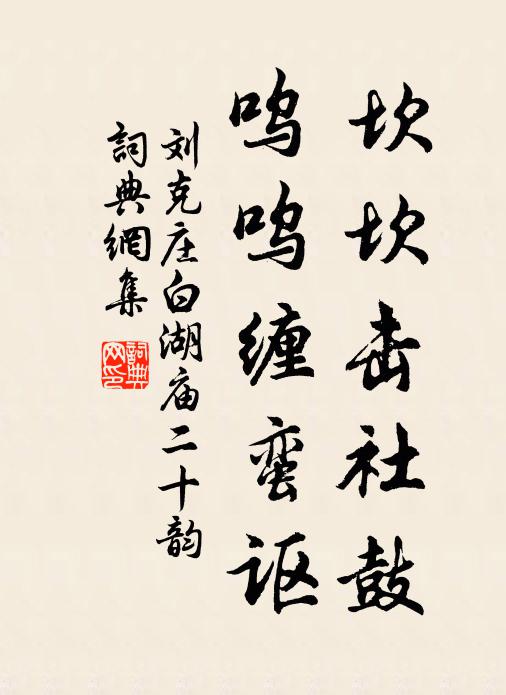 坎坎击社鼓
呜呜缠蛮讴
刘克庄白湖庙二十韵
詞典網集
詞典
网印